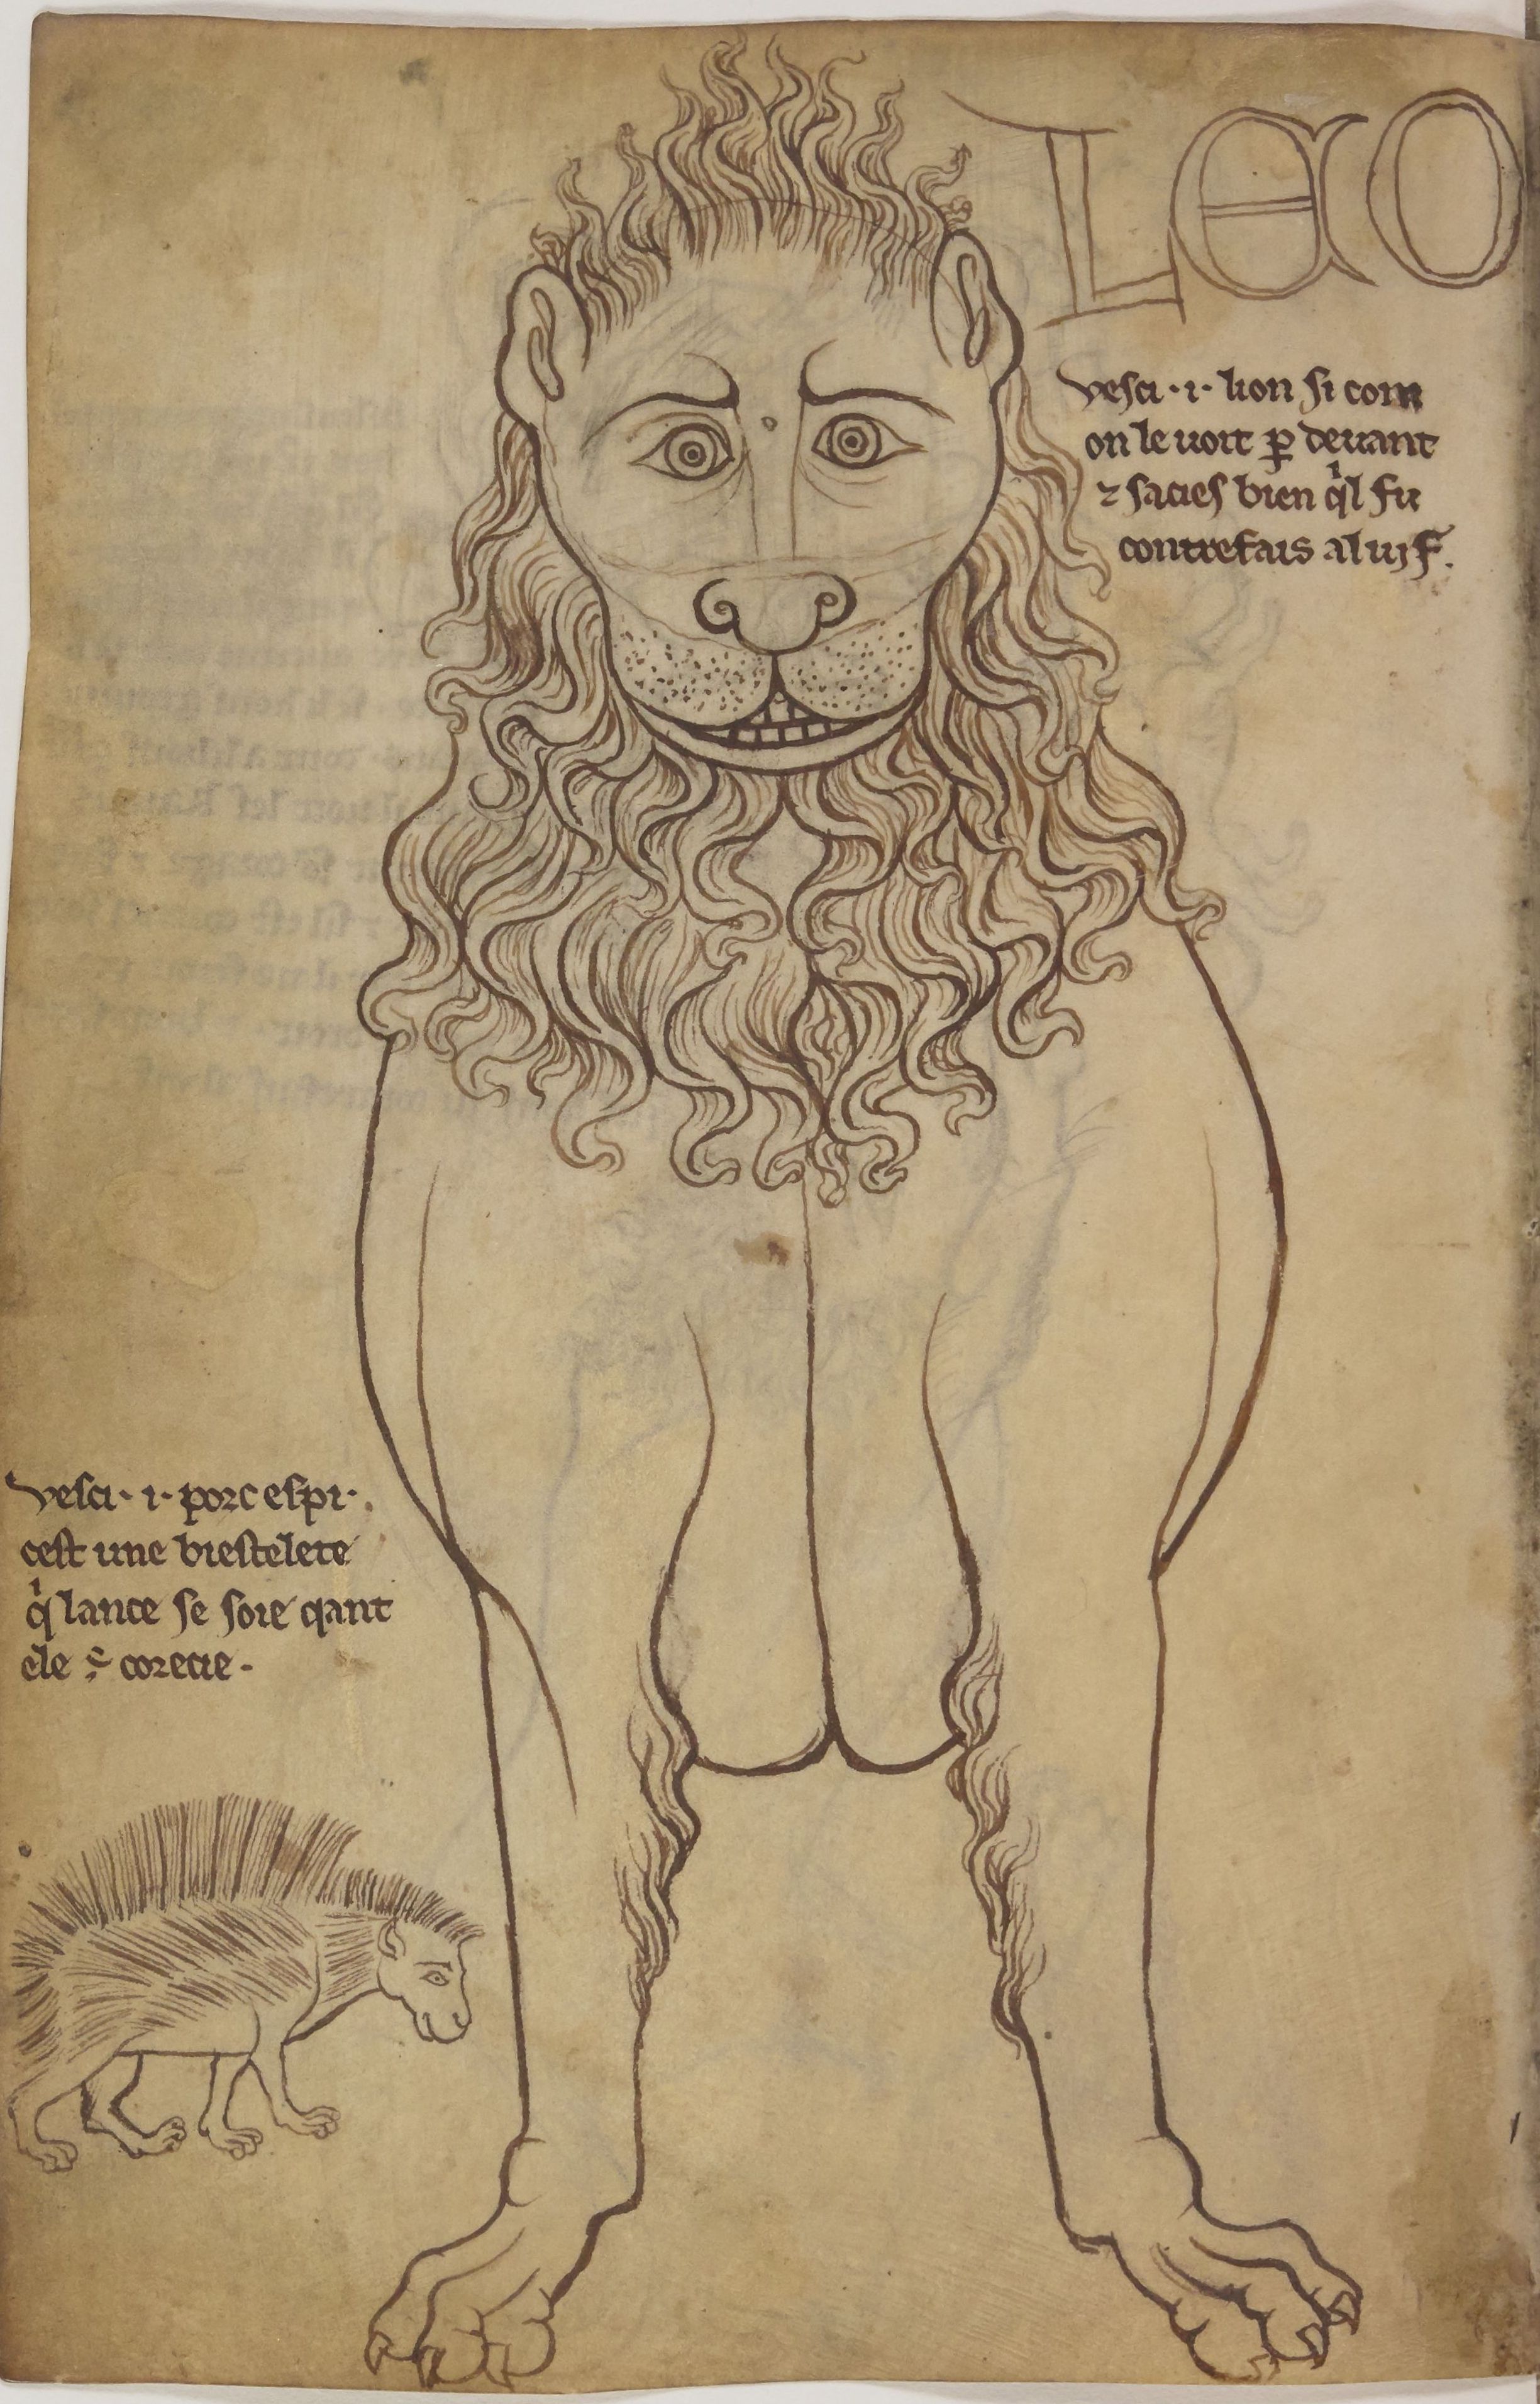 LEO
Vesci · i · lion si com
on le voit p̱ devant
⁊ sacies bien qͥl fu
contrefais al vif.
Vesci · i · porc espi ·
cest une biestelete
qͥ lance se soie qant
ele ÷ corecie ·